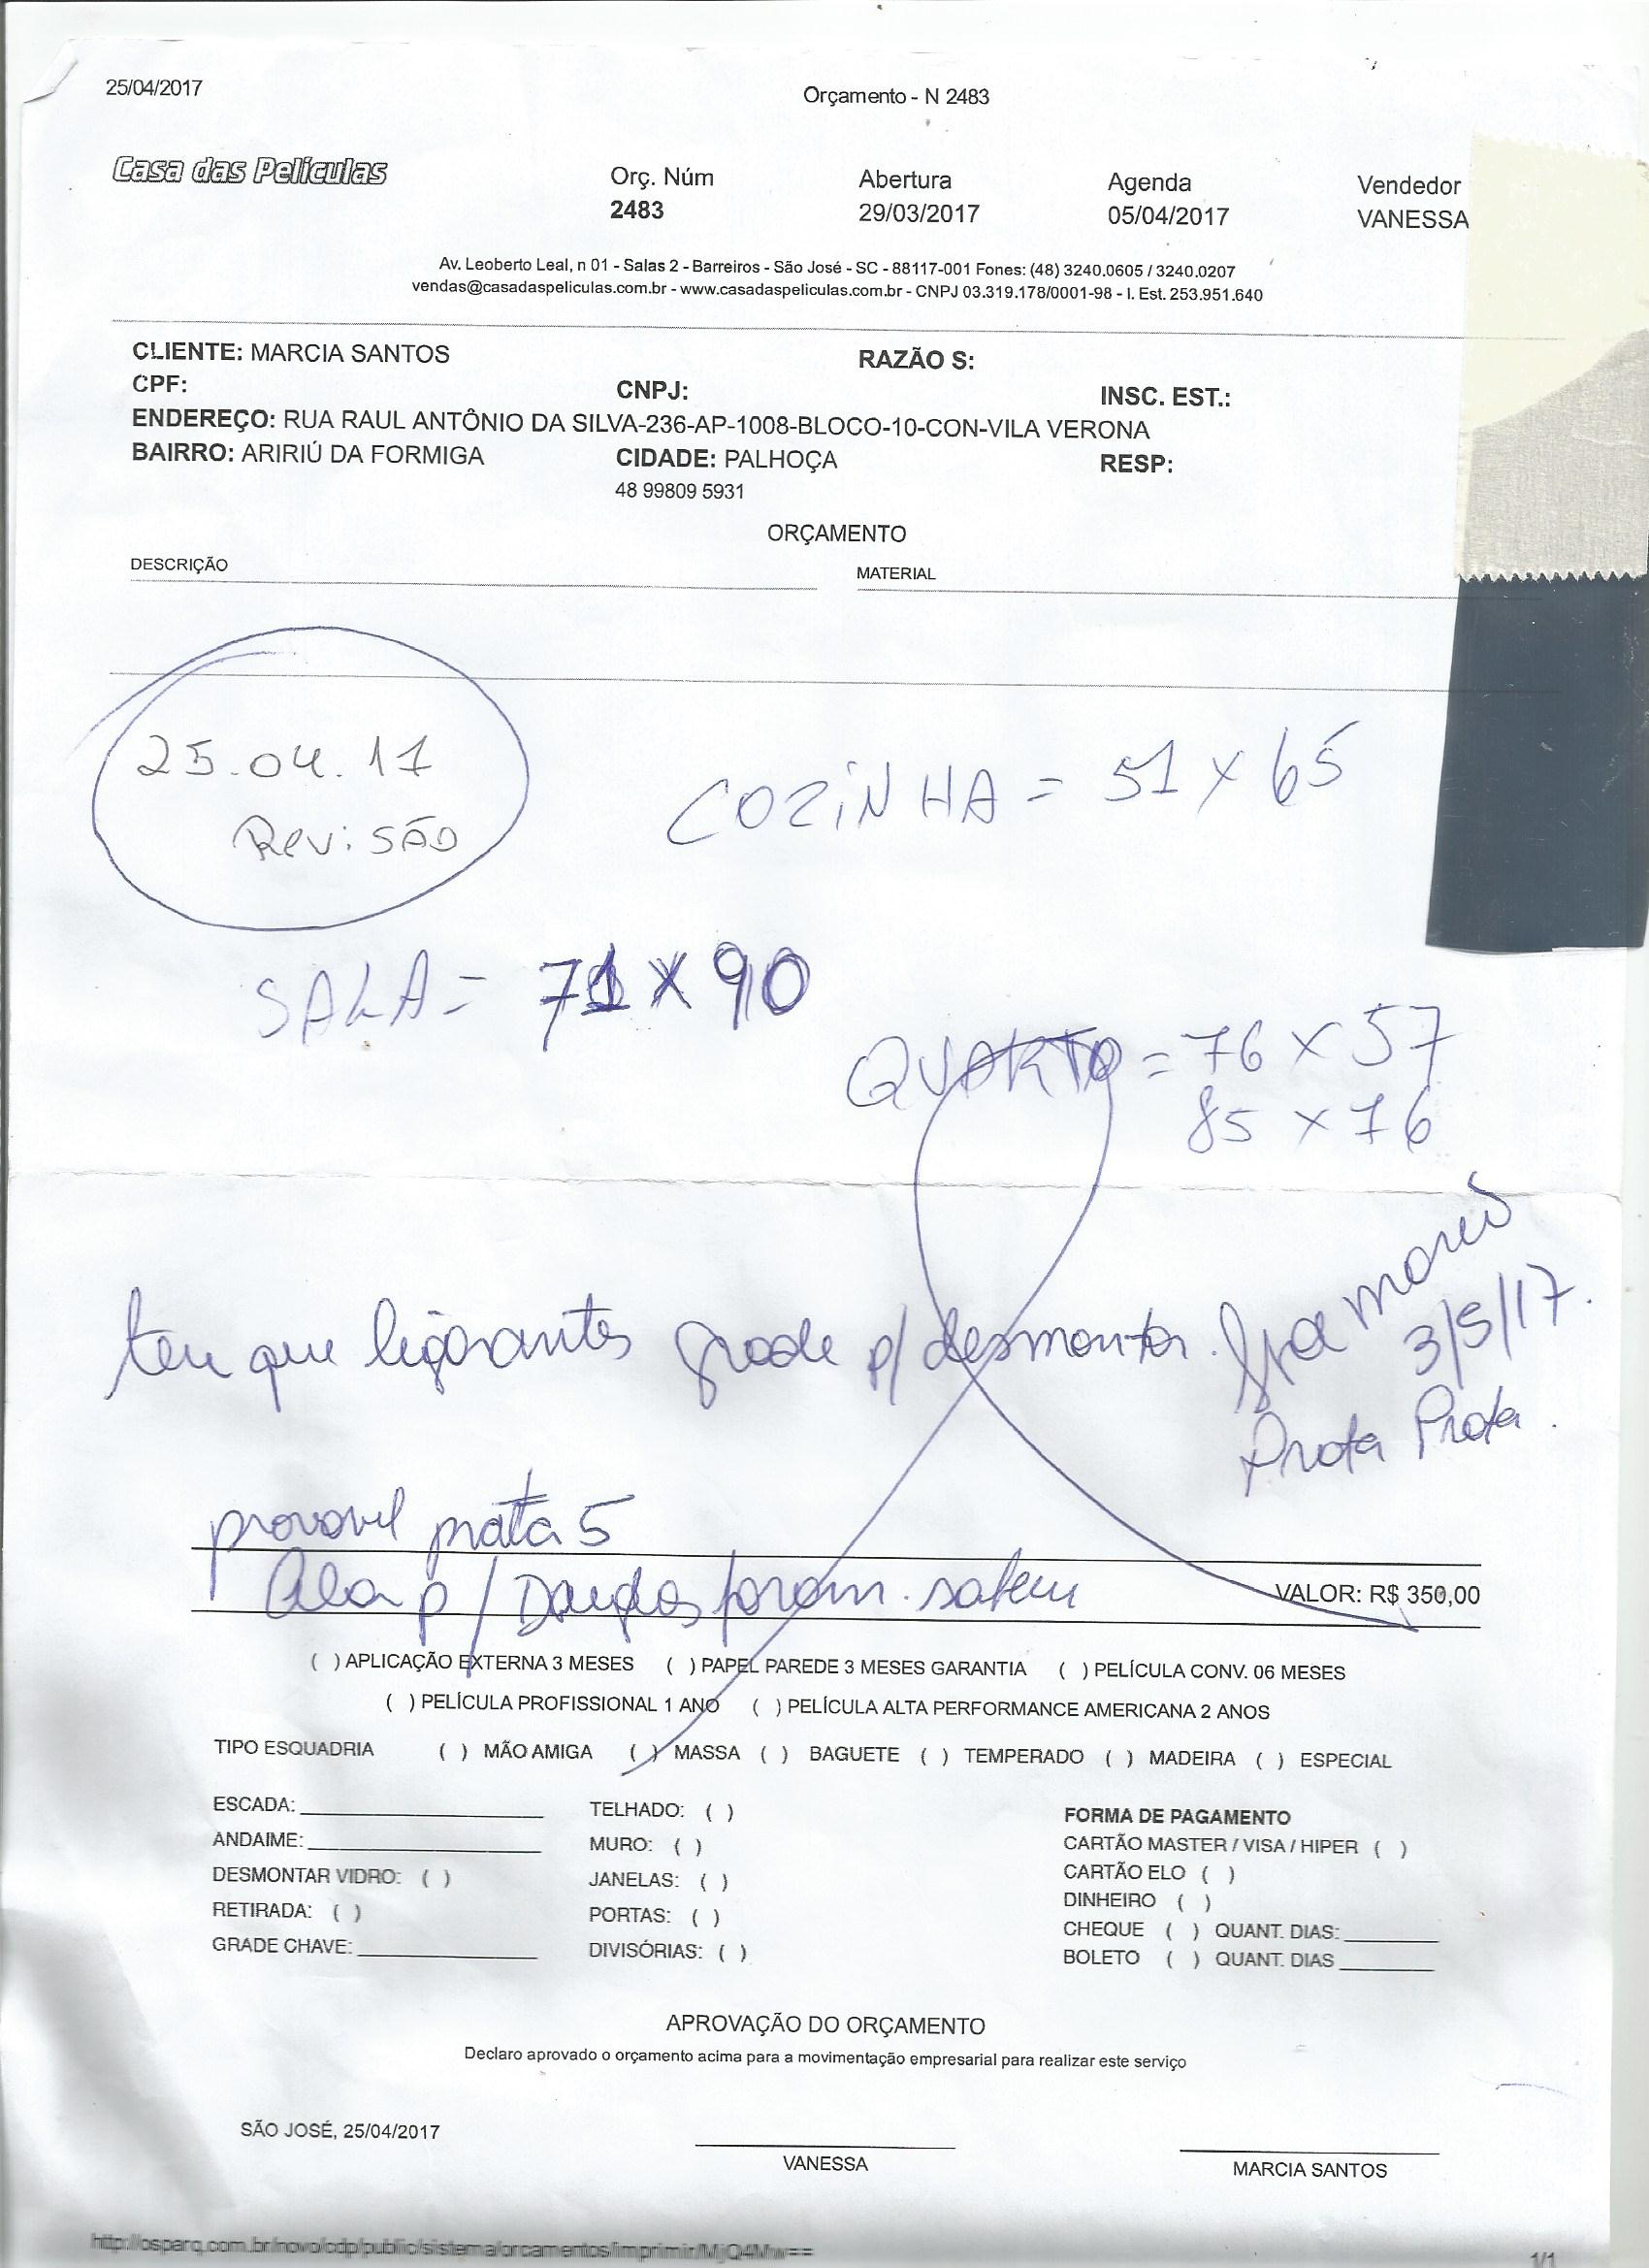 25/04/2017
Orçamento - N 2483
Casa das Películas
Orç. Núm Abertura Agenda Vendedor
2483 29/03/2017 05/04/2017 VANESSA
Av. Leoberto Leal, n 01 - Salas 2 - Barreiros - São José - SC - 88117-001 Fones: (48) 3240.0605 / 3240.0207
vendas@casadaspeliculas.com.br - www.casadaspeliculas.com.br - CNPJ 03.319.178/0001-98 - I. Est. 253.951.640
CLIENTE: MARCIA SANTOS RAZÃO S:
CPF: CNPJ: INSC. EST.:
ENDEREÇO: RUA RAUL ANTÔNIO DA SILVA-236-AP-1008-BLOCO-10-CON-VILA VERONA
BAIRRO: ARIRIÚ DA FORMIGA CIDADE: PALHOÇA RESP:
48 99809 5931
ORÇAMENTO
DESCRIÇÃO MATERIAL
25.04.17
Revisão
COZINHA = 51 x 65
SALA = 71 x 90
QUARTO = 76 x 57
85 x 76
tem que ligar antes grade p/ desmontar.
3/5/17.
Prata Prata.
provavel prata 5
VALOR: R$ 350,00
( ) APLICAÇÃO EXTERNA 3 MESES ( ) PAPEL PAREDE 3 MESES GARANTIA ( ) PELÍCULA CONV. 06 MESES
( ) PELÍCULA PROFISSIONAL 1 ANO ( ) PELÍCULA ALTA PERFORMANCE AMERICANA 2 ANOS
TIPO ESQUADRIA ( ) MÃO AMIGA ( ) MASSA ( ) BAGUETE ( ) TEMPERADO ( ) MADEIRA ( ) ESPECIAL
ESCADA: TELHADO: ( ) FORMA DE PAGAMENTO
ANDAIME: MURO: ( ) CARTÃO MASTER / VISA / HIPER ( )
DESMONTAR VIDRO: ( ) JANELAS: ( ) CARTÃO ELO ( )
RETIRADA: ( ) PORTAS: ( ) DINHEIRO ( )
GRADE CHAVE: DIVISÓRIAS: ( ) CHEQUE ( ) QUANT. DIAS:
BOLETO ( ) QUANT. DIAS
APROVAÇÃO DO ORÇAMENTO
Declaro aprovado o orçamento acima para a movimentação empresarial para realizar este serviço
SÃO JOSÉ, 25/04/2017
VANESSA MARCIA SANTOS
http://osparq.com.br/novo/cdp/public/sistema/orcamentos/imprimir/MjQ4Mw==
1/1